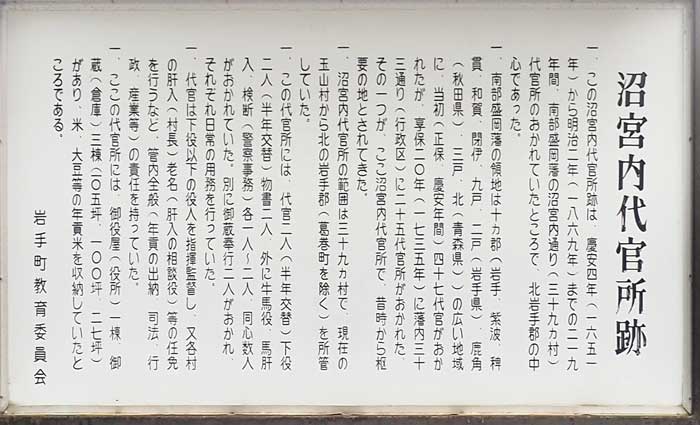 沼宮内代官所跡
一、この沼宮内代官所跡は、慶安四年(一六五一
年)から明治二年(一八六九年)までの二一九
年間、南部盛岡藩の沼宮内通り(三十九ヵ村)
代官所のおかれていたところで、北岩手郡の中
心であった。
一、南部盛岡藩の領地は十ヵ郡(岩手、紫波、稗
貫、和賀、閉伊、九戸、二戸(岩手県)、鹿角
(秋田県)、三戸、北(青森県))の広い地域
に、当初(正保、慶安年間)四十七代官がおか
れたが、享保二〇年(一七三五年)に藩内三十
三通り(行政区)に二十五代官所がおかれた、
その一つが、ここ沼宮内代官所で、昔時から枢
要の地とされてきた。
一、沼宮内代官所の範囲は三十九ヵ村で、現在の
玉山村から北の岩手郡(葛巻町を除く)を所管
していた。
一、この代官所には、代官二人(半年交替)下役
二人(半年交替)物書二人、外に牛馬役、馬肝
入、検断(警察事務)各一人~二人、同心数人
がおかれていた。別に御蔵奉行二人がおかれ、
それぞれ日常の用務を行っていた。
一、代官は下役以下の役人を指揮監督し、又各村
の肝入(村長)老名(肝入の相談役)等の任免
を行うなど、管内全般(年貢の出納、司法、行
政、産業等)の責任を持っていた。
一、ここの代官所には、御役屋(役所)一棟、御
蔵(倉庫)三棟(一〇五坪、一〇〇坪、二七坪)
があり、米、大豆等の年貢米を収納していたと
ころである。
岩手町教育委員会